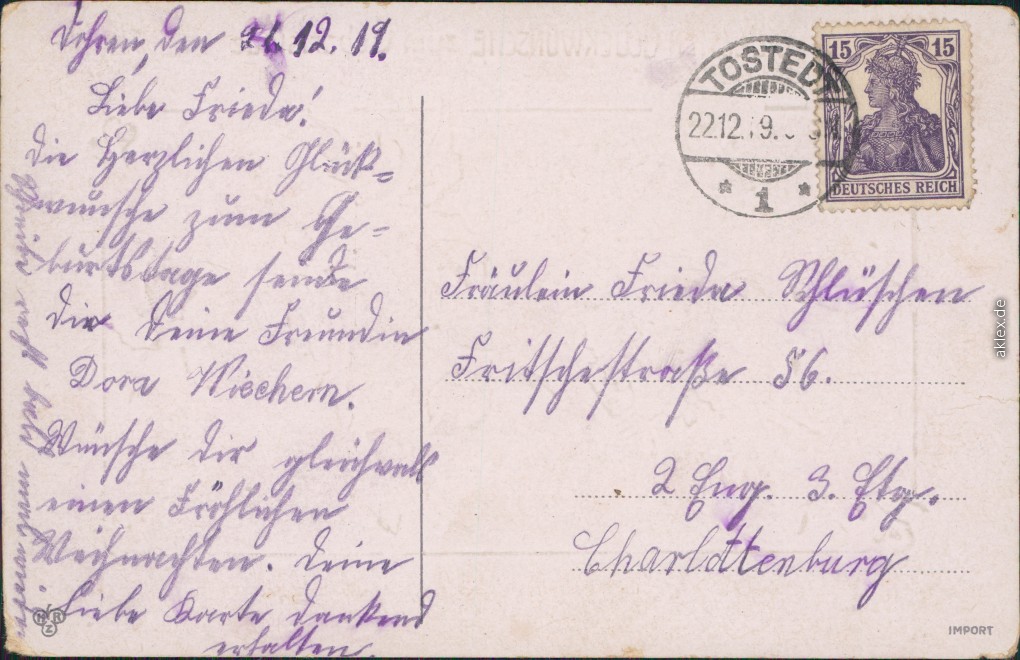 Dohren, den 21.12.19.
Liebe Frieda!
Die Herzlichen Glück=
wunsche zum Ge=
burtstage sende
Dir Deine Freundin
Dora Wischern.
Wünsche dir gleichvals
einen Fröhlichen
Weihnachten. Deine
Liebe Karte dankend
erhalten.
TOSTEDT
22.12.19.
* 1 *
15 15
DEUTSCHES REICH
Fräulein Frieda Schlüschen
Fritschestraße 56.
2 Eing. 3. Etg.
Charlottenburg
HR
Z
IMPORT
aklex.de